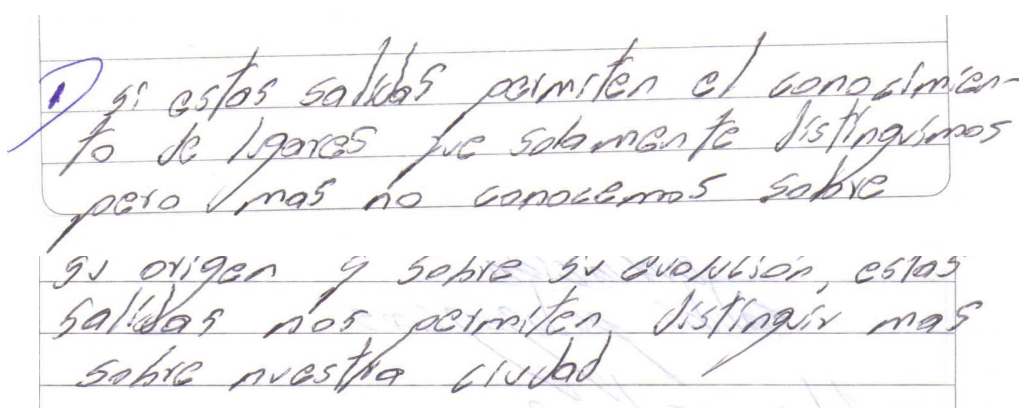 1 si estas salidas permiten el conocimien-
to de lugares que solamente distinguimos
pero mas no conocemos sobre
su origen y sobre su evolucion, estas
salidas nos permiten distinguir mas
sobre nuestra ciudad